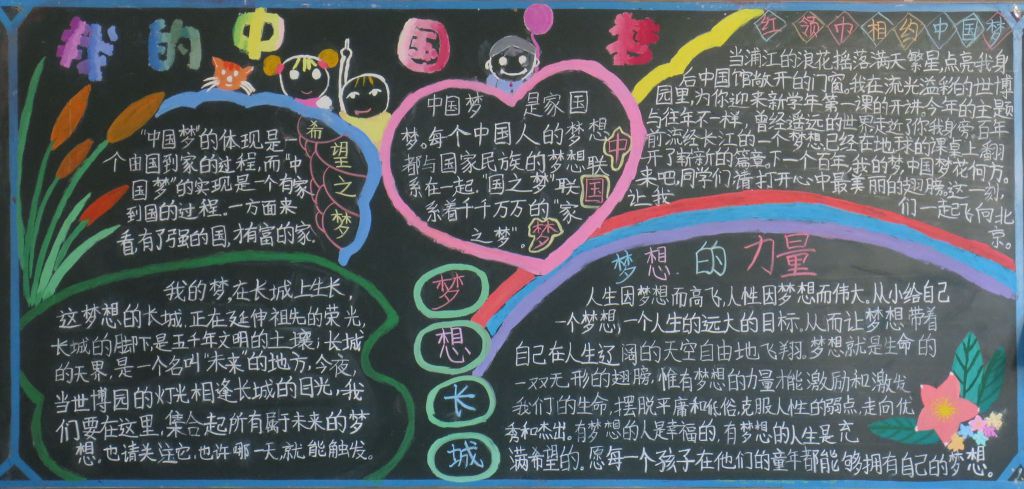 我的中国梦
"中国梦"的体现是一
个由国到家的过程,而"中
国梦"的实现是一个有家
到国的过程.一方面来
看有了强的国,才有富的家.
希望之梦
中国梦 是家国
梦。每个中国人的梦想
都与国家民族的梦想联
系在一起."国之梦"联
系着千千万万的"家
之梦".
中国梦
红领巾相约中国梦
当浦江的浪花摇落满天繁星点亮我身
后中国馆敞开的门窗。我在流光溢彩的世博
园里,为你迎来新学年第一课的开讲.今年的主题
与往年不一样,曾经遥远的世界走近了你我身旁.百年
可流经长江的一个梦想已经在地球的课桌上翻
开了崭新的篇章.下一个百年,我的梦,中国梦花何方。
来吧,同学们,请打开心中最美丽的翅膀,这一刻,
让我们一起飞向北
京。
我的梦,在长城上生长
这梦想的长城,正在延伸祖先的荣光,
长城的脚下是五千年文明的土壤;长城
的天果,是一个名叫"未来"的地方,今夜,
当世博园的灯光相逢长城的目光,我
们要在这里,集合起所有属于未来的梦
想,也请关注它,也许哪一天,就能触发。
梦想长城
梦想的力量
人生因梦想而高飞,人性因梦想而伟大,从小给自己
一个梦想,一个人生的远大的目标,从而让梦想带着
自己在人生辽阔的天空自由地飞翔。梦想就是生命的
一双无形的翅膀,惟有梦想的力量才能激励和激发
我们的生命,摆脱平庸和低俗,克服人性的弱点,走向优
秀和杰出。有梦想的人是幸福的,有梦想的人生是充
满希望的。愿每一个孩子在他们的童年都能够拥有自己的梦想。